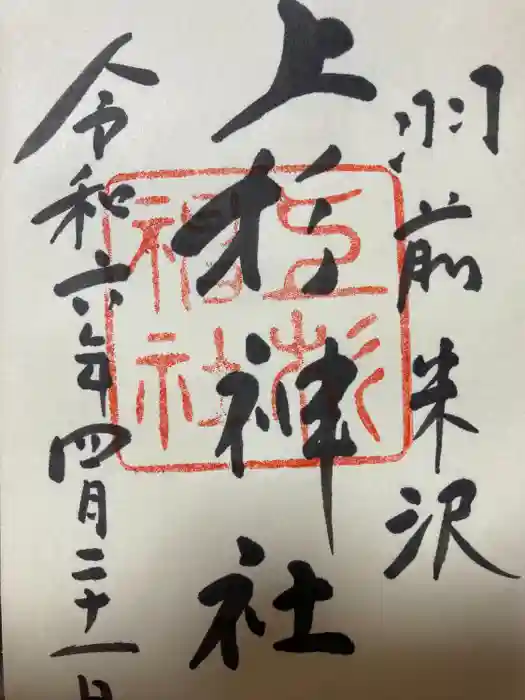 羽前米沢
上杉神社
令和六年四月二十一日